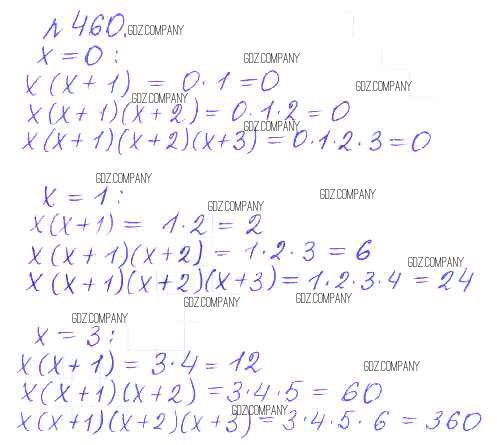 № 460.
x = 0 :
x (x + 1) = 0 · 1 = 0
x (x + 1) (x + 2) = 0 · 1 · 2 = 0
x (x + 1) (x + 2) (x + 3) = 0 · 1 · 2 · 3 = 0
x = 1 :
x (x + 1) = 1 · 2 = 2
x (x + 1) (x + 2) = 1 · 2 · 3 = 6
x (x + 1) (x + 2) (x + 3) = 1 · 2 · 3 · 4 = 24
x = 3 :
x (x + 1) = 3 · 4 = 12
x (x + 1) (x + 2) = 3 · 4 · 5 = 60
x (x + 1) (x + 2) (x + 3) = 3 · 4 · 5 · 6 = 360
GDZ.COMPANY
GDZ.COMPANY
GDZ.COMPANY
GDZ.COMPANY
GDZ.COMPANY
GDZ.COMPANY
GDZ.COMPANY
GDZ.COMPANY
GDZ.COMPANY
GDZ.COMPANY
GDZ.COMPANY
GDZ.COMPANY
GDZ.COMPANY
GDZ.COMPANY